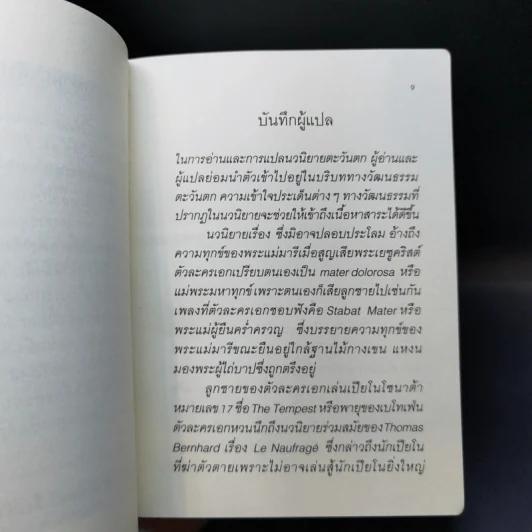 9
บันทึกผู้แปล
ในการอ่านและการแปลนวนิยายตะวันตก ผู้อ่านและ
ผู้แปลย่อมนำตัวเข้าไปอยู่ในบริบททางวัฒนธรรม
ตะวันตก ความเข้าใจประเด็นต่าง ๆ ทางวัฒนธรรมที่
ปรากฏในนวนิยายจะช่วยให้เข้าถึงเนื้อหาสาระได้ดีขึ้น
นวนิยายเรื่อง ซึ่งมิอาจปลอบประโลม อ้างถึง
ความทุกข์ของพระแม่มารีเมื่อสูญเสียพระเยซูคริสต์
ตัวละครเอกเปรียบตนเองเป็น mater dolorosa หรือ
แม่พระมหาทุกข์ เพราะตนเองก็เสียลูกชายไปเช่นกัน
เพลงที่ตัวละครเอกชอบฟังคือ Stabat Mater หรือ
พระแม่ผู้ยืนคร่ำครวญ ซึ่งบรรยายความทุกข์ของ
พระแม่มารีขณะยืนอยู่ใกล้ฐานไม้กางเขน แหงน
มองพระผู้ไถ่บาปซึ่งถูกตรึงอยู่
ลูกชายของตัวละครเอกเล่นเปียโนโซนาต้า
หมายเลข 17 ชื่อ The Tempest หรือพายุของเบโทเฟ่น
ตัวละครเอกหวนนึกถึงนวนิยายร่วมสมัยของ Thomas
Bernhard เรื่อง Le Naufragé ซึ่งกล่าวถึงนักเปียโน
ที่ฆ่าตัวตายเพราะไม่อาจเล่นสู้นักเปียโนยิ่งใหญ่